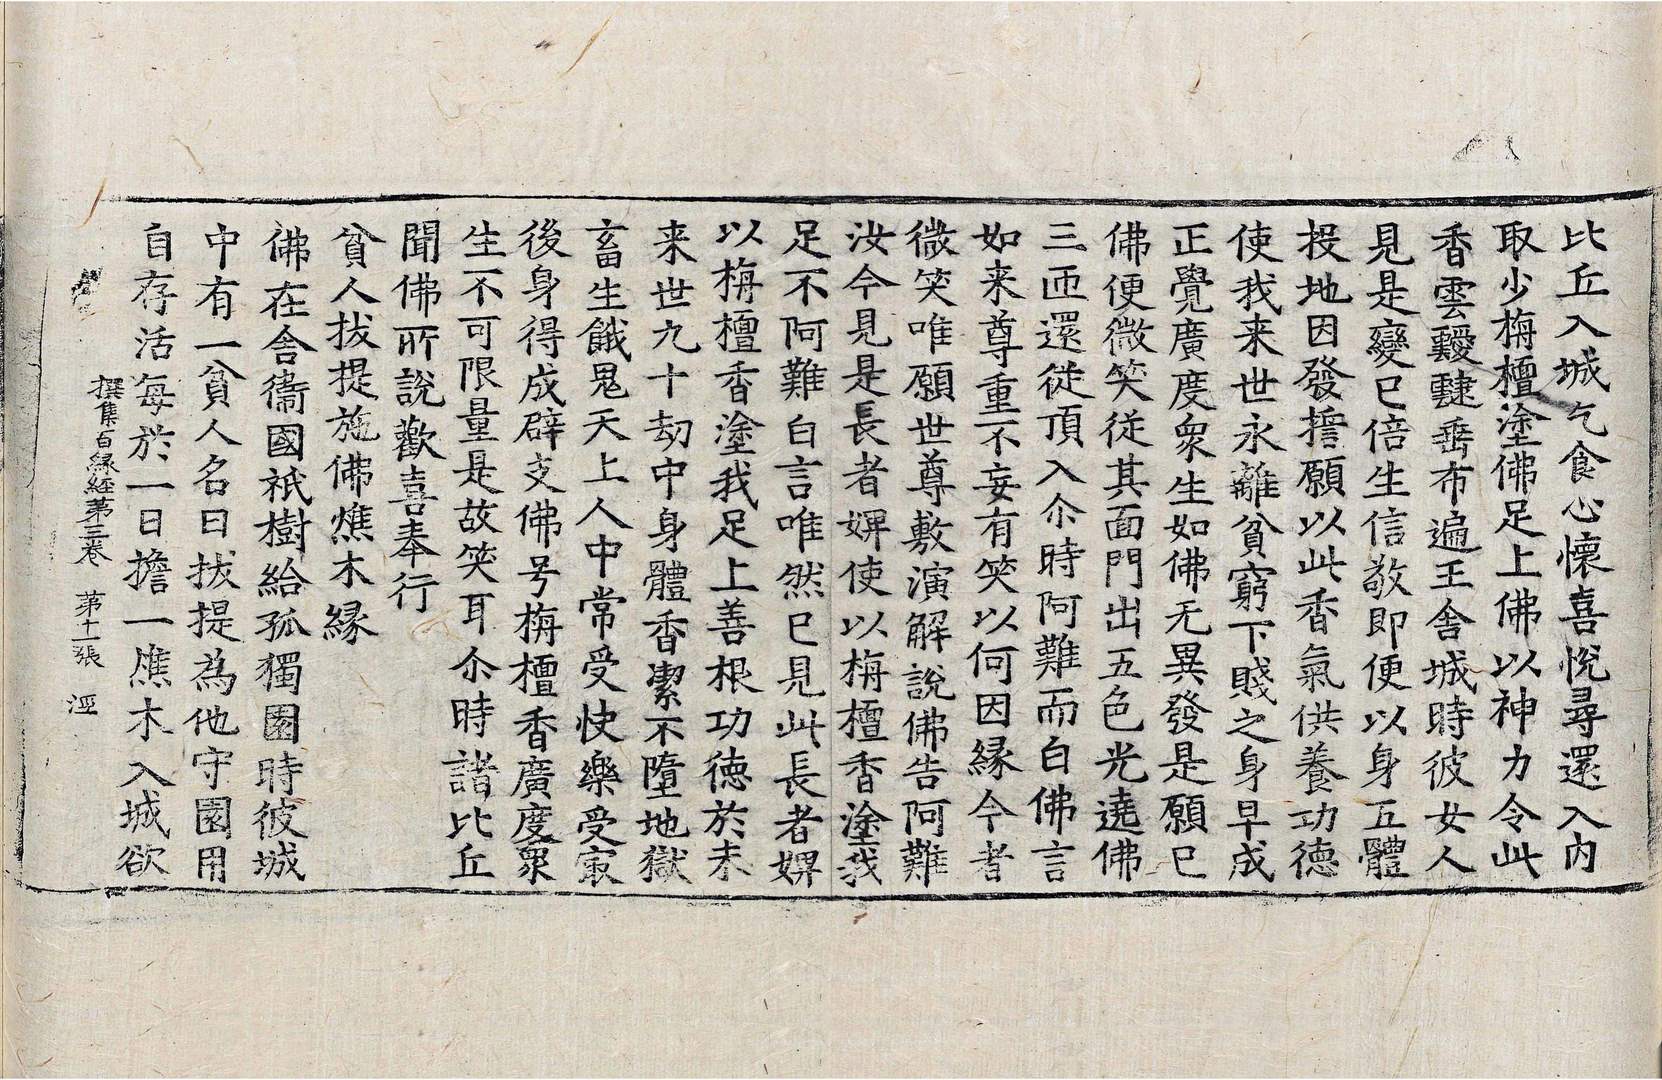 比丘入城乞食心懷喜悅尋還入内
取少栴檀塗佛足上佛以神力令此
香雲靉靆垂布遍王舍城時彼女人
見是變已倍生信敬即便以身五體
投地因發擔願以此香氣供養功德
使我来世永離貧窮下賤之身早成
正覺廣度衆生如佛无異發是願已
佛便微笑従其面門出五色光遶佛
三匝還従頂入尒時阿難而白佛言
如来尊重不妄有笑以何因縁今者
微笑唯願世尊敷演解說佛告阿難
汝今見是長者婢使以栴檀香塗我
足不阿難白言唯然已見此長者婢
以栴檀香塗我足上善根功德於未
来世九十劫中身體香潔不墮地獄
畜生餓鬼天上人中常受快樂受㝡
後身得成辟支佛号栴檀香廣度衆
生不可限量是故笑耳尒時諸比丘
聞佛所說歡喜奉行
貧人拔提施佛燋木縁
佛在舍衞國祇樹給孤獨園時彼城
中有一貧人名曰拔提為他守園用
自存活每於一日擔一燋木入城欲
撰集百縁経第三卷 第十一張 涇